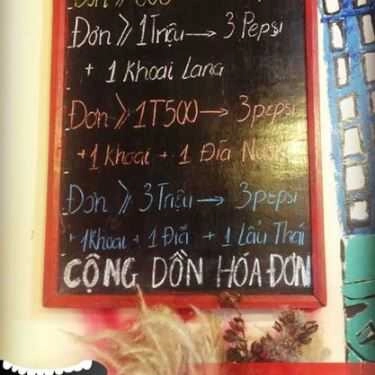 Đơn ≥ 1 Triệu → 3 Pepsi
+ 1 Khoai Lang
Đơn ≥ 1T500 → 3 pepsi
+ 1 Khoai + 1 Đĩa
Đơn ≥ 3 Triệu → 3 pepsi
+ 1 Khoai + 1 Đĩa + 1 Lẩu Thái
CỘNG DỒN HÓA ĐƠN